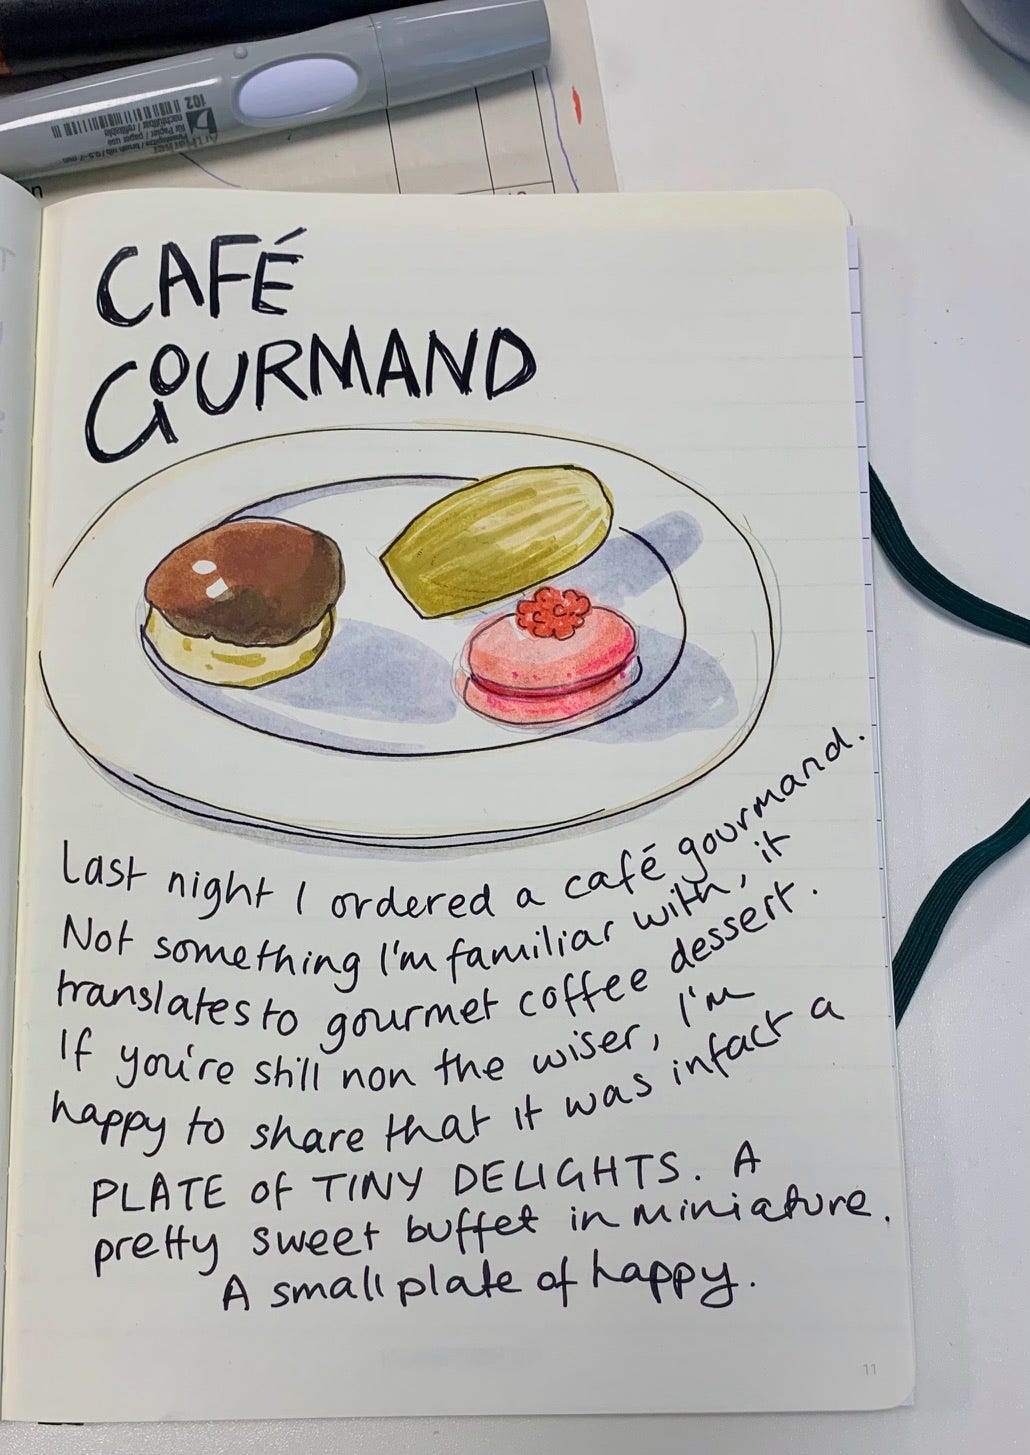 CAFÉ
GOURMAND
Last night I ordered a café gourmand.
Not something I'm familiar with, it
translates to gourmet coffee dessert.
If you're still non the wiser, I'm
happy to share that it was infact a
PLATE of TINY DELIGHTS. A
pretty sweet buffet in miniature.
A small plate of happy.
11
102
nachfüllbar / refillable
für Papier / paper use